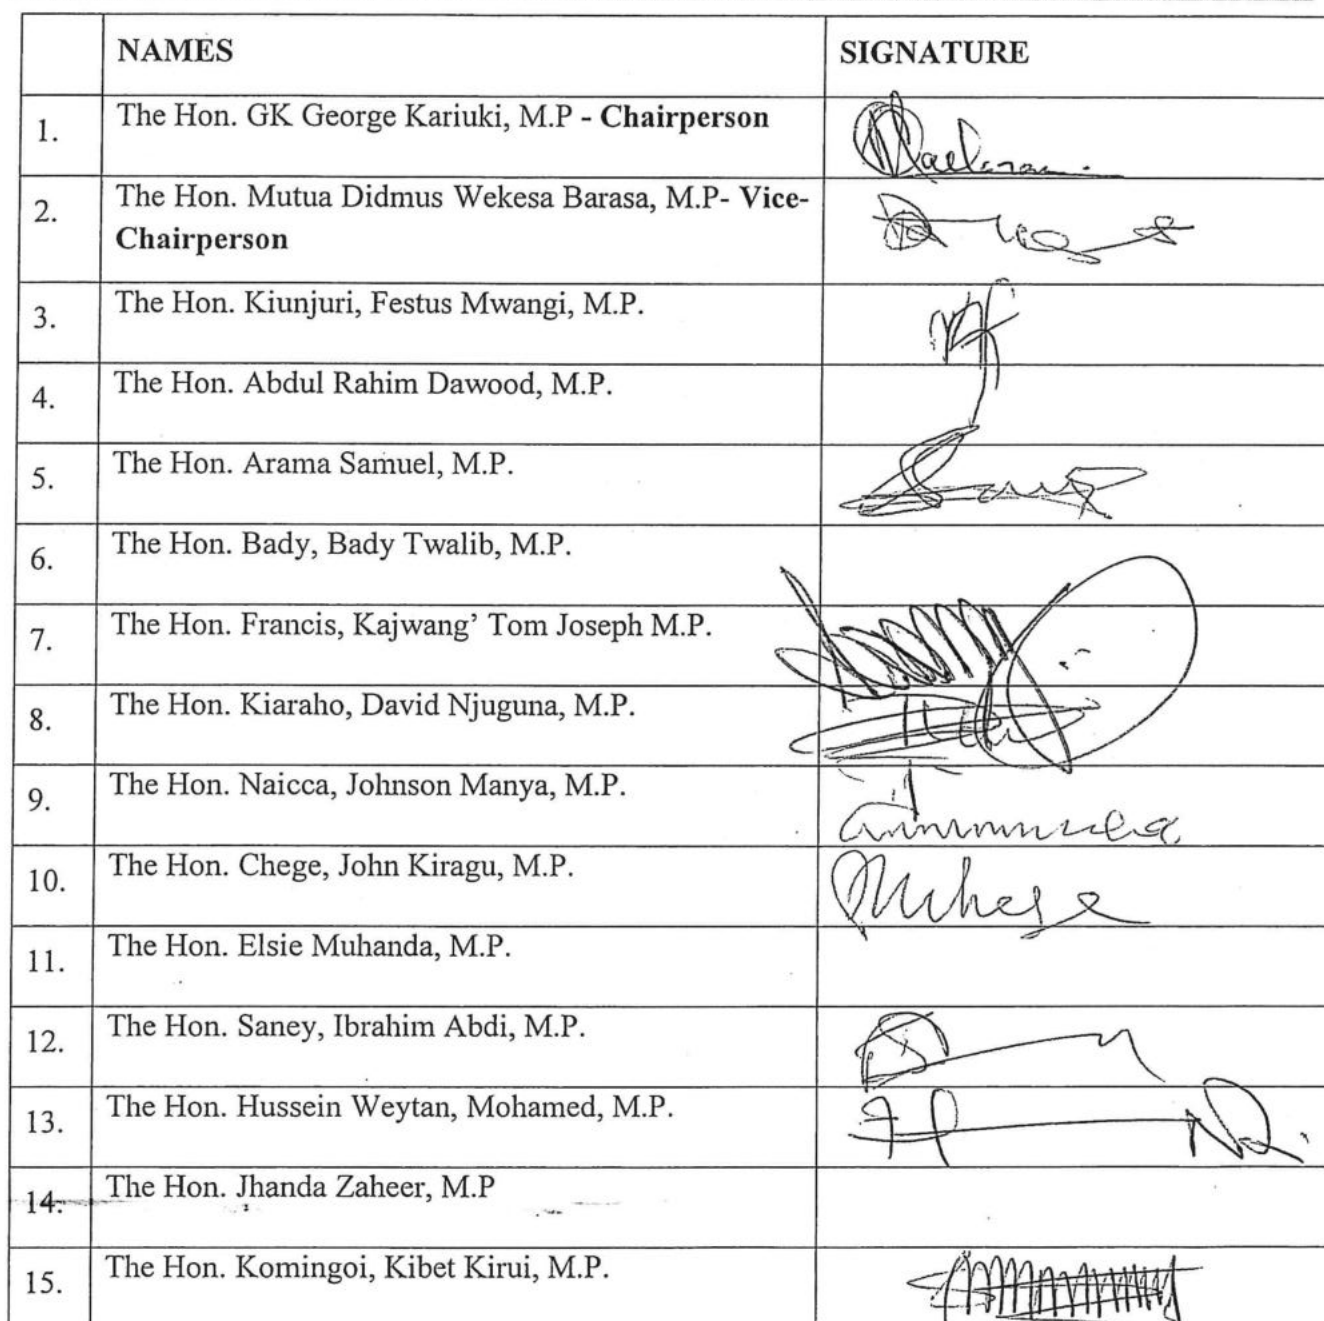 NAMES SIGNATURE
1. The Hon. GK George Kariuki, M.P - Chairperson
2. The Hon. Mutua Didmus Wekesa Barasa, M.P- Vice-
Chairperson
3. The Hon. Kiunjuri, Festus Mwangi, M.P.
4. The Hon. Abdul Rahim Dawood, M.P.
5. The Hon. Arama Samuel, M.P.
6. The Hon. Bady, Bady Twalib, M.P.
7. The Hon. Francis, Kajwang’ Tom Joseph M.P.
8. The Hon. Kiaraho, David Njuguna, M.P.
9. The Hon. Naicca, Johnson Manya, M.P.
10. The Hon. Chege, John Kiragu, M.P.
11. The Hon. Elsie Muhanda, M.P.
12. The Hon. Saney, Ibrahim Abdi, M.P.
13. The Hon. Hussein Weytan, Mohamed, M.P.
14. The Hon. Jhanda Zaheer, M.P
15. The Hon. Komingoi, Kibet Kirui, M.P.